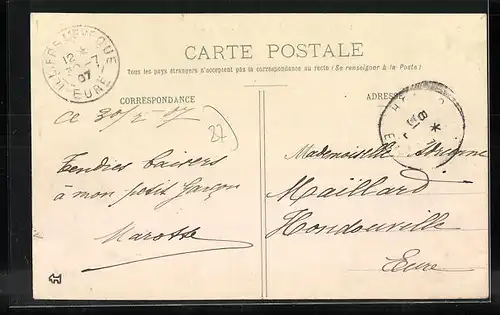 CARTE POSTALE
Tous les pays étrangers n'acceptent pas la correspondance au recto (Se renseigner à la Poste)
CORRESPONDANCE
ADRESSE
Ce 30/7-07
87
Tendres baisers
à mon petit garçon
Marotte
Mademoiselle Adrienne
Maillard
Hondouville
Eure
12
-7
07
EURE